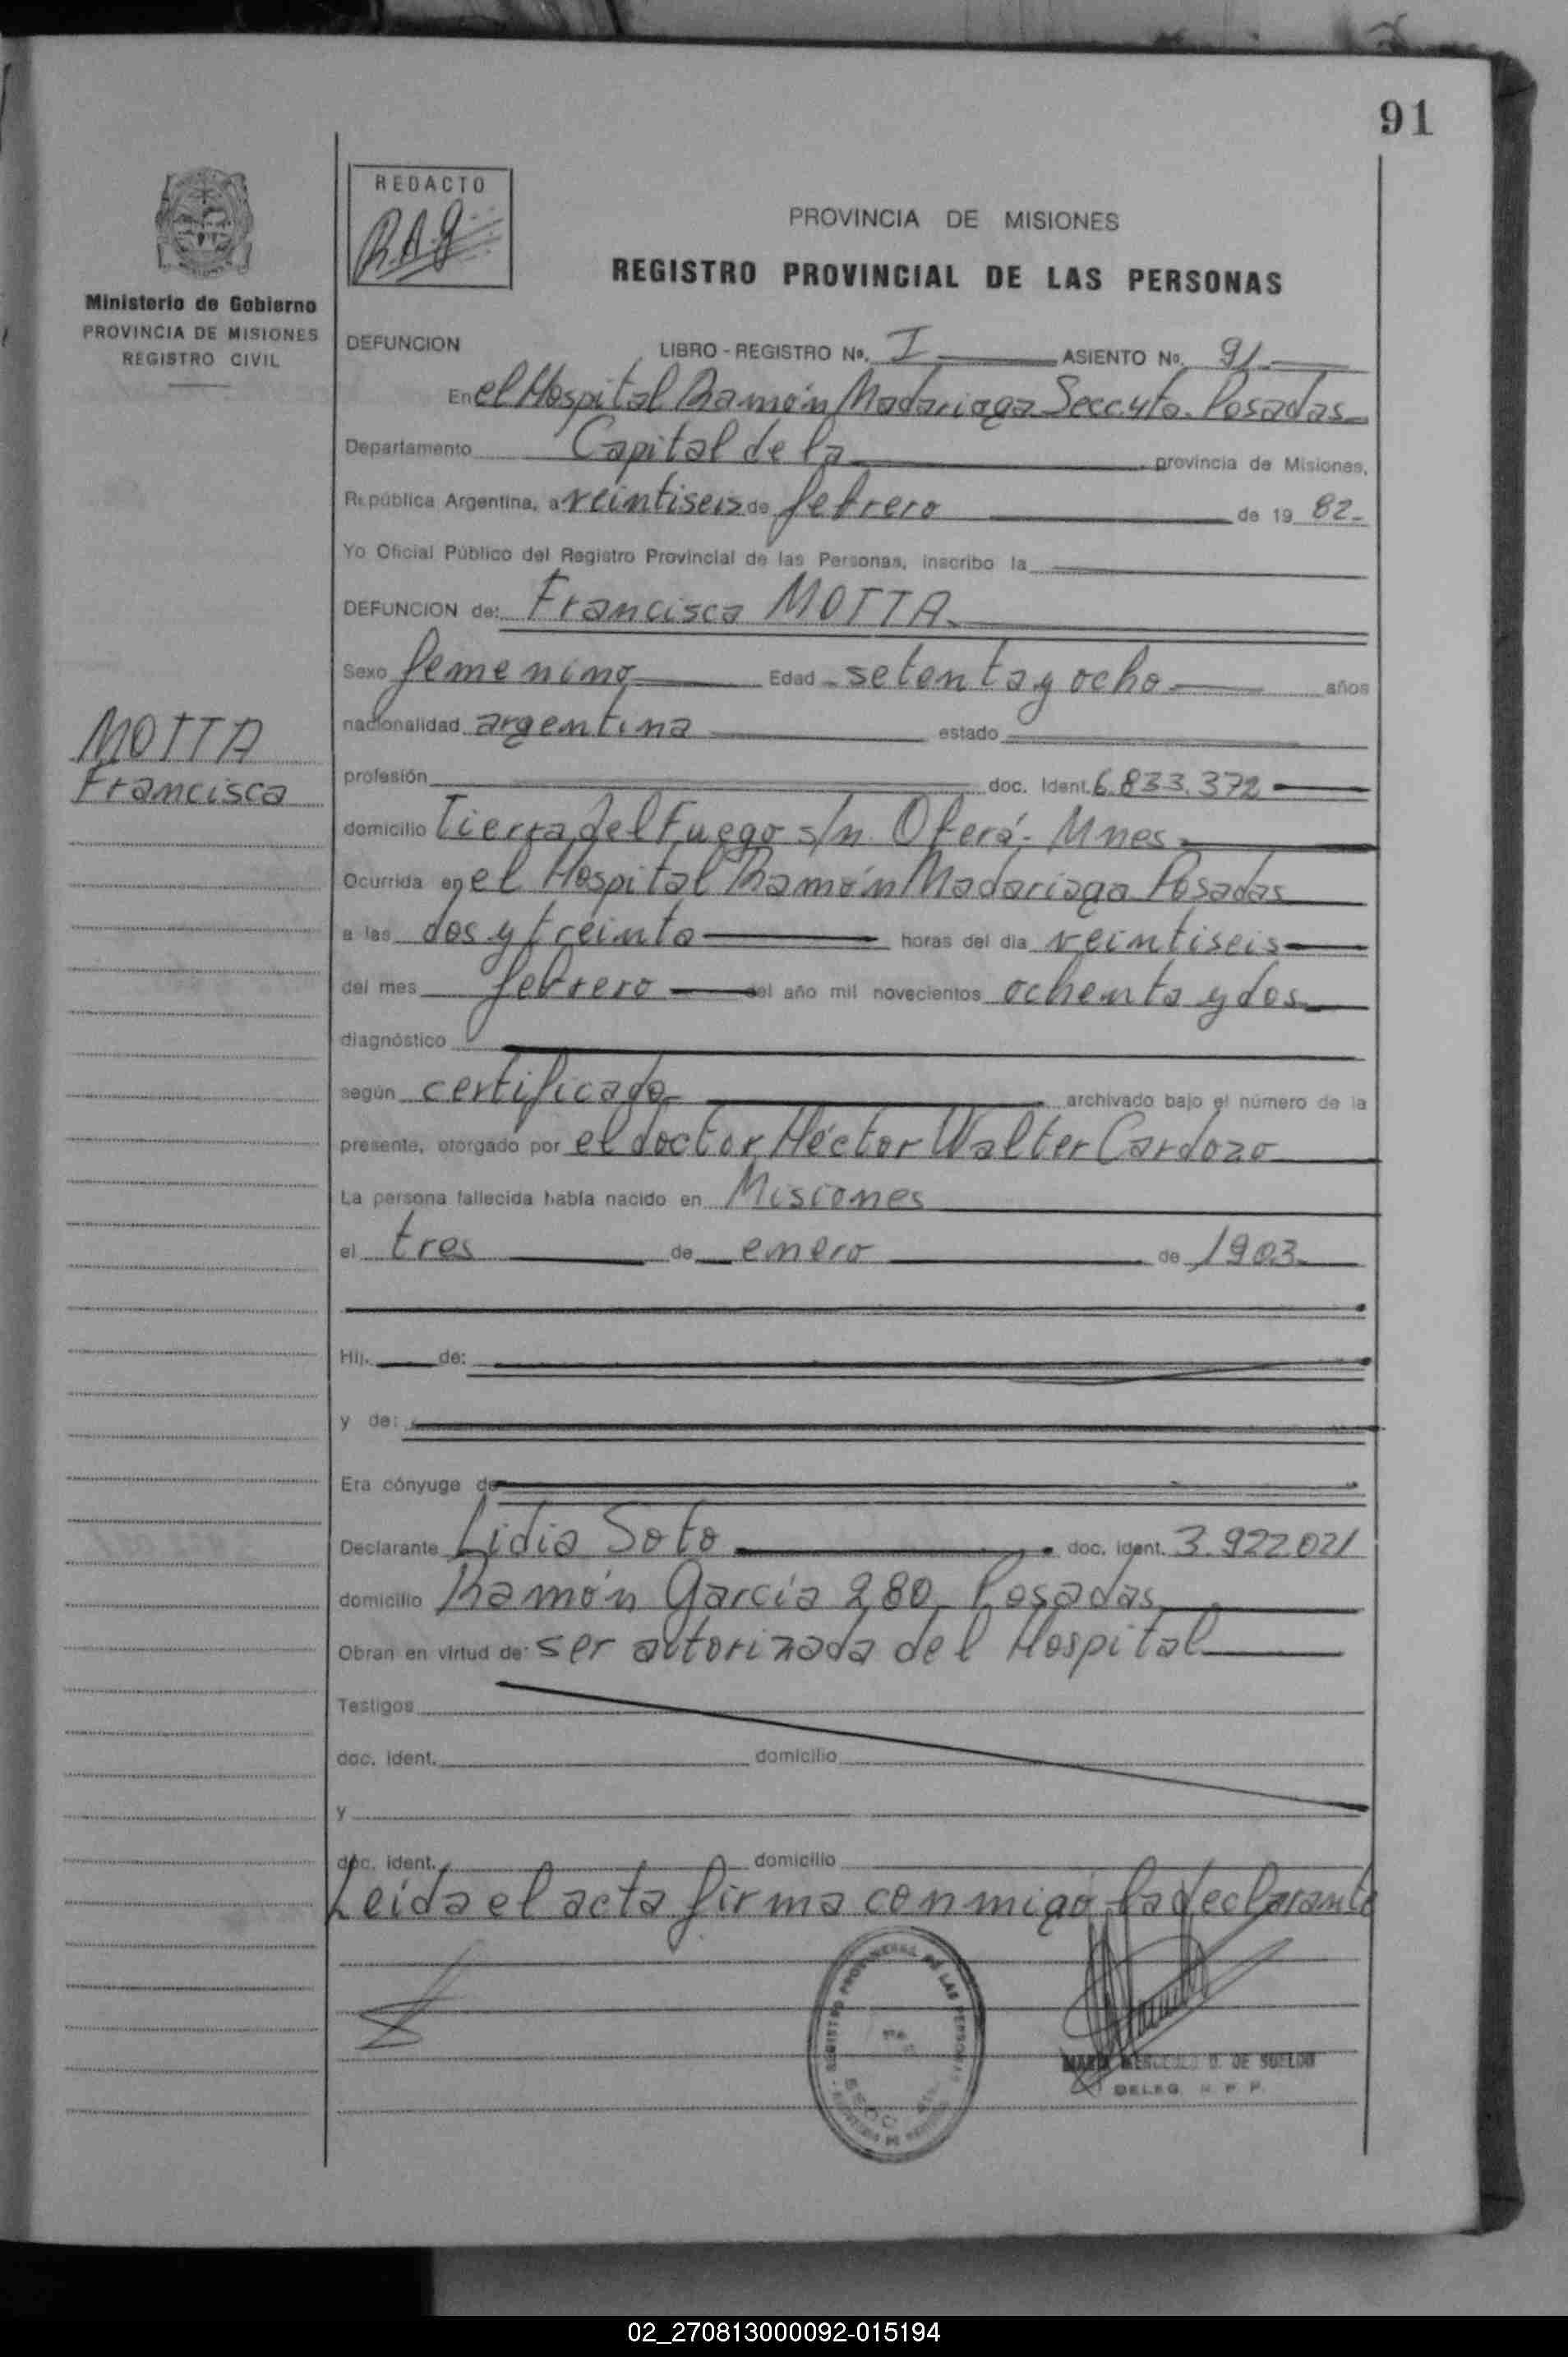 91
REDACTO
PROVINCIA DE MISIONES
REGISTRO PROVINCIAL DE LAS PERSONAS
Ministerio de Gobierno
PROVINCIA DE MISIONES
REGISTRO CIVIL
DEFUNCION LIBRO - REGISTRO Nº. I ASIENTO Nº. 91
En el Hospital Ramón Madariaga Secc. 4ta. Posadas
Departamento Capital de la provincia de Misiones,
República Argentina, a veintiseis de febrero de 19 82.
Yo Oficial Público del Registro Provincial de las Personas, inscribo la
DEFUNCION de: Francisca MOTTA
Sexo femenino Edad setenta y ocho años
nacionalidad argentina estado
MOTTA
Francisca
profesión doc. Ident. 6.833.372
domicilio Tierra del Fuego s/n. Oberá - Mnes
Ocurrida en el Hospital Ramón Madariaga Posadas
a las dos y treinta horas del día veintiseis
del mes febrero del año mil novecientos ochenta y dos
diagnóstico
según certificado archivado bajo el número de la
presente, otorgado por el doctor Héctor Walter Cardozo
La persona fallecida había nacido en Misiones
el tres de enero de 1903
Hij. de:
y de:
Era cónyuge de
Declarante Lidia Soto doc. ident. 3.922.021
domicilio Ramón García 280 Posadas
Obran en virtud de: ser autorizada del Hospital
Testigos
doc. ident. domicilio
y
doc. ident. domicilio
Leida el acta firma conmigo la declarante
REGISTRO PROVINCIAL DE LAS PERSONAS
DE SUELDO
DELEG. R. P. P.
02_270813000092-015194